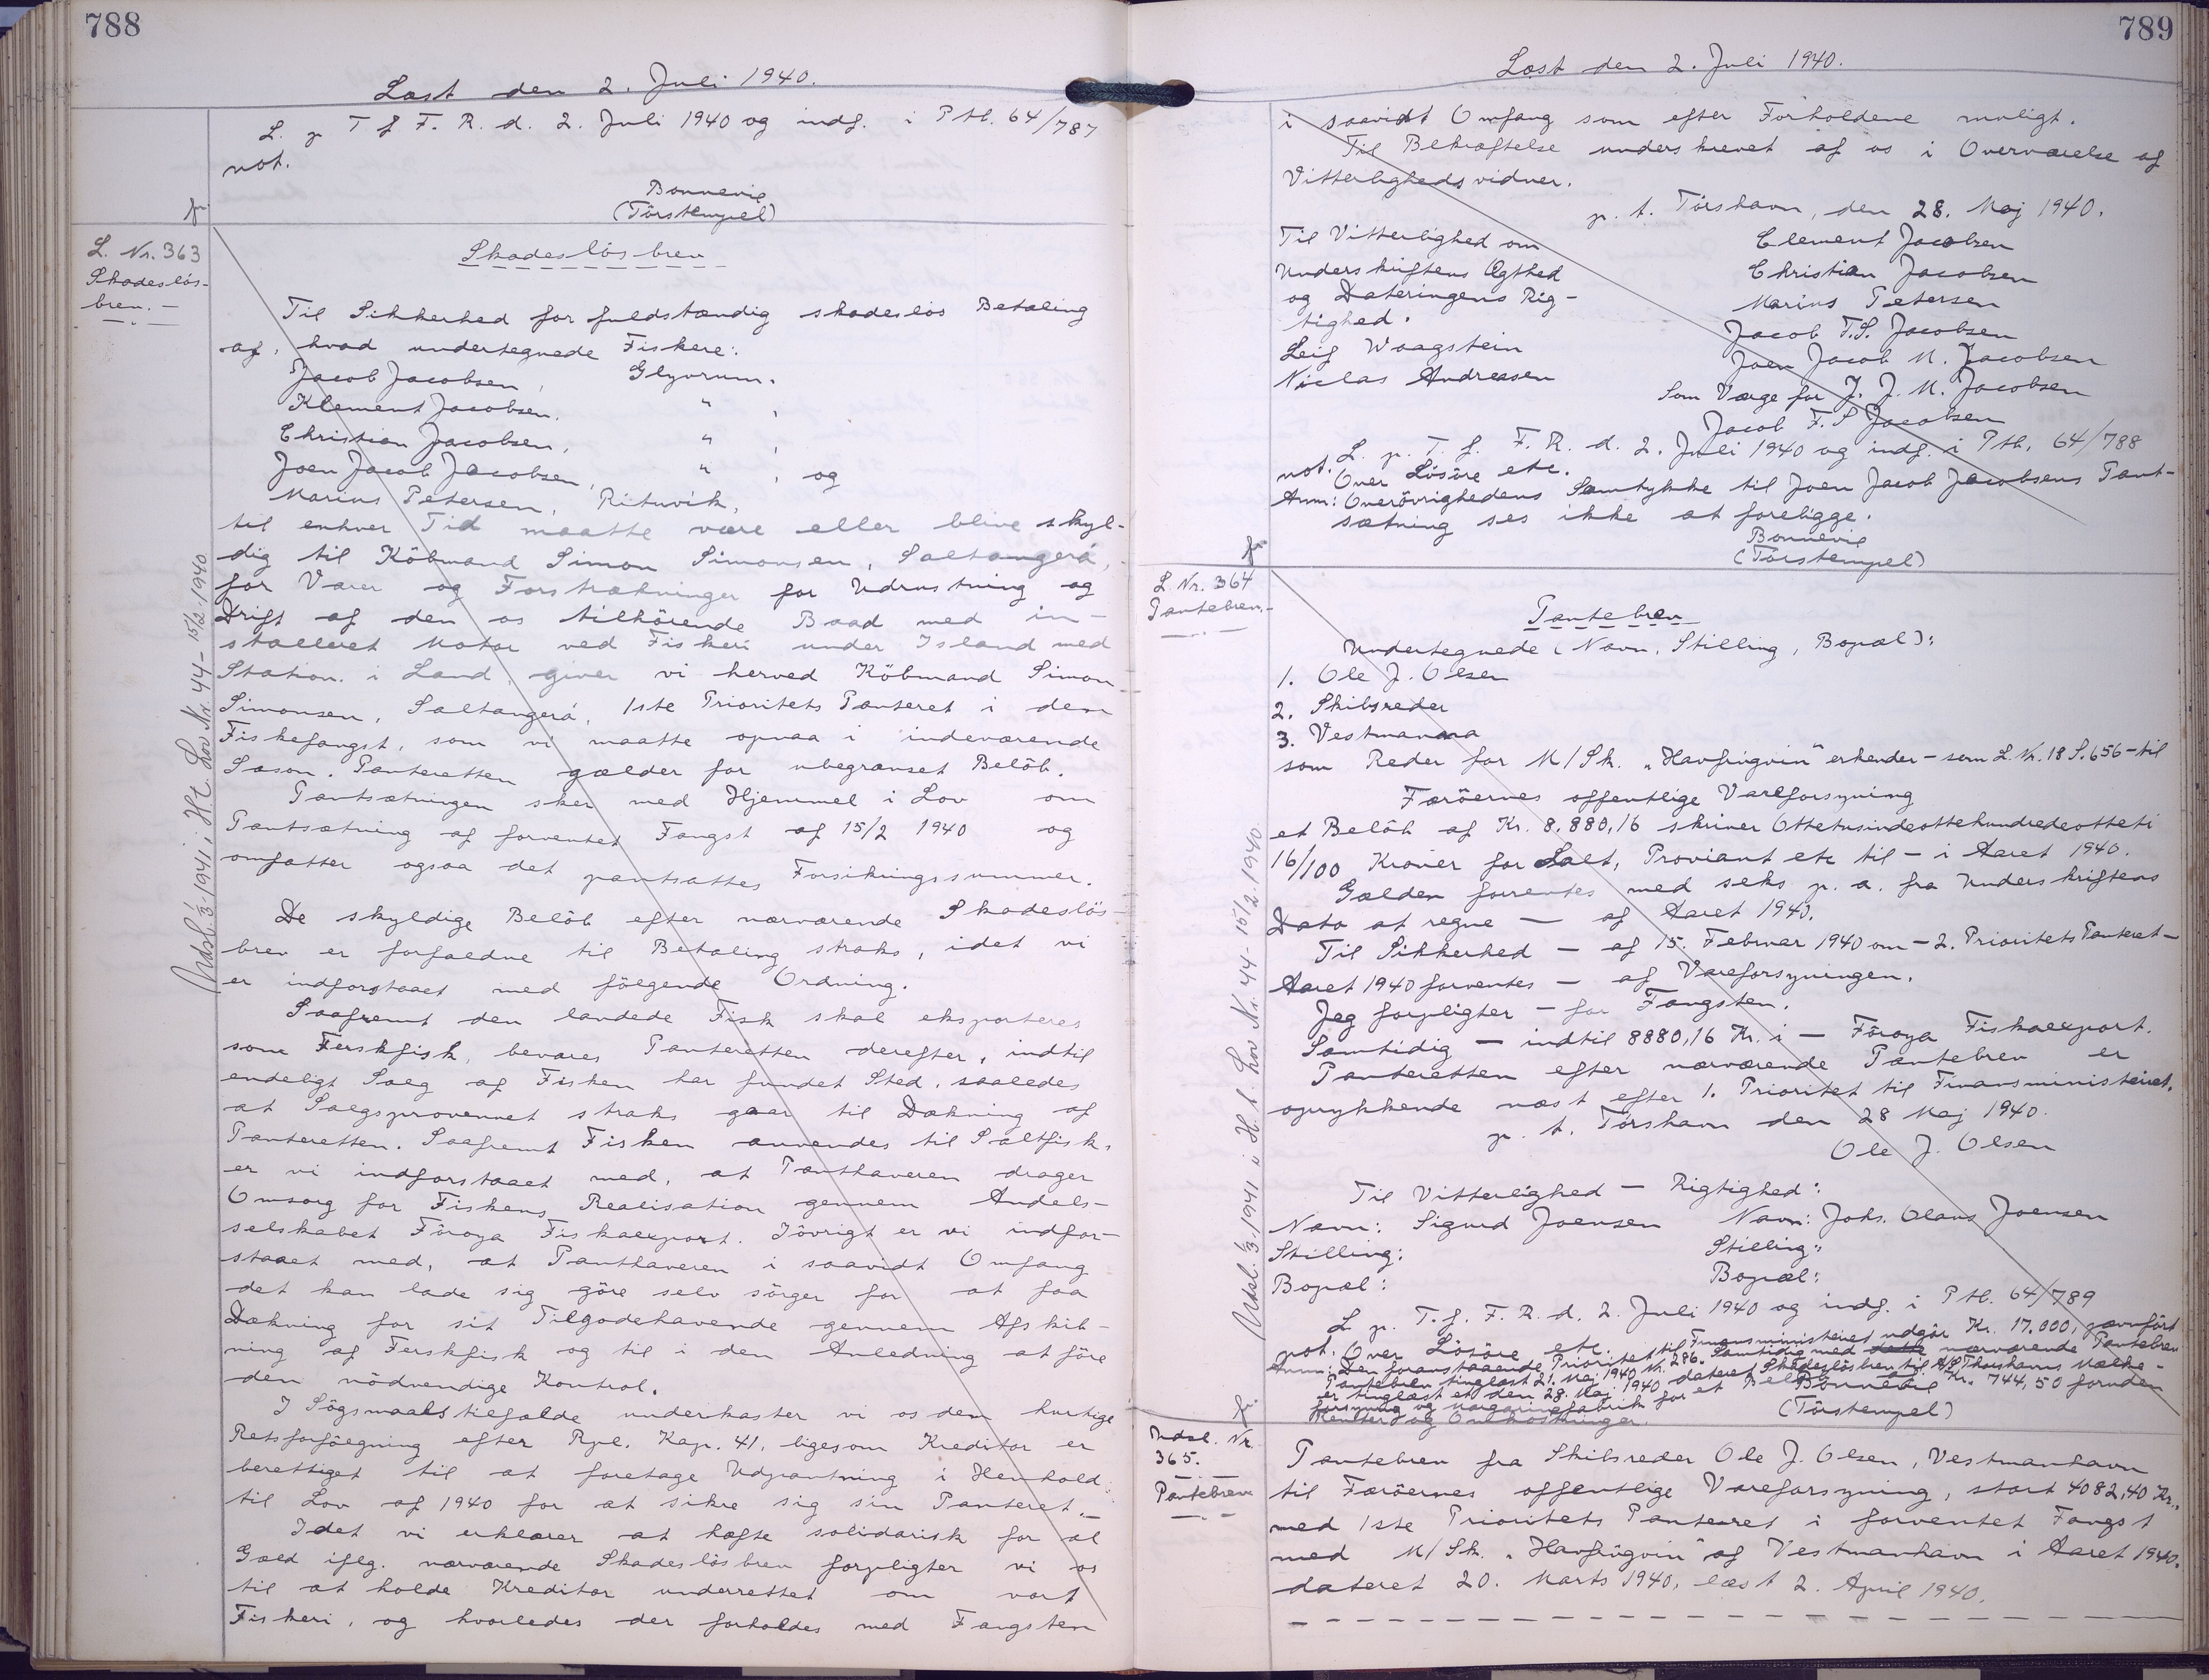 788
Læst den 2. Juli 1940.
L. p T f F. R. d. 2. Juli 1940 og indf. i Ptl. 64/787
not.
Bonnevie
(Tórstempel)
L. Nr. 363
Skadeslös-
brev. —
Skadeslösbrev
Til Sikkerhed for fuldstændig skadeslös Betaling
af, hvad undertegnede Fiskere:
Jacob Jacobsen, Glyvrum.
Klement Jacobsen, " ,
Christian Jacobsen, " ,
Joen Jacob Jacobsen, " , og
Marius Petersen, Rituvik,
til enhver Tid maatte være eller blive skyl-
dig til Köbmand Simon Simonsen, Saltangerá,
for Varer og Forstrækninger for Udrustning og
Drift af den os tilhörende Baad med in-
stalleret Motor ved Fiskeri under Island med
Station i Land, giver vi herved Köbmand Simon
Simonsen, Saltangerá, 1ste Prioritets Panteret i den
Fiskefangst, som vi maatte opnaa i indeværende
Sæson. Panteretten gælder for ubegrænset Belöb.
Pantsætningen sker med Hjemmel i Lov om
Pantsætning af forventet Fangst af 15/2 1940 og
omfatter ogsaa det pantsattes Forsikringssummer.
De skyldige Belöb efter nærværende Skadeslös-
brev er forfaldne til Betaling straks, idet vi
er indforstaaet med fölgende Ordning.
Saafremt den landede Fisk skal eksporteres
som Ferskfisk, bevares Panteretten derefter, indtil
endeligt Salg af Fisken har fundet Sted, saaledes
at Salgsprovennet straks gaar til Dækning af
Panteretten. Saafremt Fisken anvendes til Saltfisk,
er vi indforstaaet med, at Panthaveren drager
Omsorg for Fiskens Realisation gennem Andels-
selskabet Föroya Fiskaexport. Iövrigt er vi indfor-
staaet med, at Panthaveren i saavidt Omfang
det kan lade sig göre selv sörger for at faa
Dækning for sit Tilgodehavende gennem Afskib-
ning af Ferskfisk og til i den Anledning at före
den nödvendige Kontrol.
I Sögsmaalstilfælde underkaster vi os den hurtige
Retsforfölgning efter Rpl. Kap. 41, ligesom Kreditor er
berettiget til at foretage Udpantning i Henhold
til Lov af 1940 for at sikre sig sin Panteret. —
Idet vi erklærer at hæfte solidarisk for al
Gæld iflg. nærværende Skadeslösbrev forpligter vi os
til at holde Kreditor underrettet om vort
Fiskeri, og hvorledes der forholdes med Fangsten
Udsl. 1/3-1941 i H.t. Lov Nr. 44 - 15/2-1940
789
Læst den 2. Juli 1940.
i saavidt Omfang som efter Forholdene muligt.
Til Bekræftelse underskrevet af os i Overværelse af
Vitterlighedsvidner.
p. t. Tórshavn, den 28. Maj 1940.
Til Vitterlighed om
Underskriftens Ægthed
og Dateringens Rig-
tighed.
Leif Waagstein
Niclas Andreasen
Clement Jacobsen
Christian Jacobsen
Marius Petersen
Jacob F.S. Jacobsen
Joen Jacob M. Jacobsen
Som Værge for J. J. M. Jacobsen
Jacob F. S Jacobsen
L. p. T. f. F. R. d. 2. Juli 1940 og indf. i Ptl. 64/788
not. Over Lösöre etc.
Anm: Overövrighedens Samtykke til Joen Jacob Jacobsens Pant-
sætning ses ikke at foreligge.
Bonnevie
(Tórstempel)
L. Nr. 364
Pantebrev. -
Pantebrev
Undertegnede (Navn, Stilling, Bopæl):
1. Ole J. Olsen
2. Skibsreder
3. Vestmanna
som Reder for M/Sk. „Havfrúgvin" erkender - som L. Nr. 18 S. 656 - til
Færöernes offentlige Vareforsyning
et Belöb af Kr. 8.880,16 skriver Ottetusindeottehundredeotteti
16/100 Kroner for Salt, Proviant etc til - i Aaret 1940.
Gælden forrentes med seks p. a. fra Underskriftens
Dato at regne — af Aaret 1940.
Til Sikkerhed - af 15. Februar 1940 om - 2. Prioritets Panteret -
Aaret 1940 forventes - af Vareforsyningen.
Jeg forpligter - for Fangsten.
Samtidig - indtil 8880,16 Kr. i - Föroya Fiskaexport.
Panteretten efter nærværende Pantebrev er
oprykkende næst efter 1. Prioritet til Finansministeriet.
p. t. Tórshavn den 28 Maj 1940.
Ole J. Olsen
Til Vitterlighed - Rigtighed:
Navn: Sigurd Joensen Navn: Johs. Olavs Joensen
Stilling: Stilling:
Bopæl: Bopæl:
L. p. T. f. F. R. d. 2. Juli 1940 og indf. i Ptl. 64/789
not. Over Lösöre etc.
Anm: Den foranstaaende Prioritet til Finansministeriet udgör Kr. 17.000, jævnfört
Pantebrev tinglæst 21. Maj 1940 Nr. 286. Samtidig med nærværende Pantebrev
er tinglæst et den 28. Maj 1940 dateret Skadeslösbrev til A/S Thorshavns Mælke-
forsyning og Margarinefabrik for et Belöb af Kr. 744,50 foruden
Renter og Omkostninger.
Bonnevie
(Tórstempel)
Udsl. 1/3-1941 i H. t. Lov Nr. 44 - 15/2. 1940.
Udsl. Nr.
365.
Pantebrev
Pantebrev fra Skibsreder Ole J. Olsen, Vestmanhavn
til Færöernes offentlige Vareforsyning, stort 4082,40 Kr.,
med 1ste Prioritets Panteret i forventet Fangst
med M/Sk. „Havfrúgvin" af Vestmanhavn i Aaret 1940.
dateret 20. Marts 1940, læst 2. April 1940.